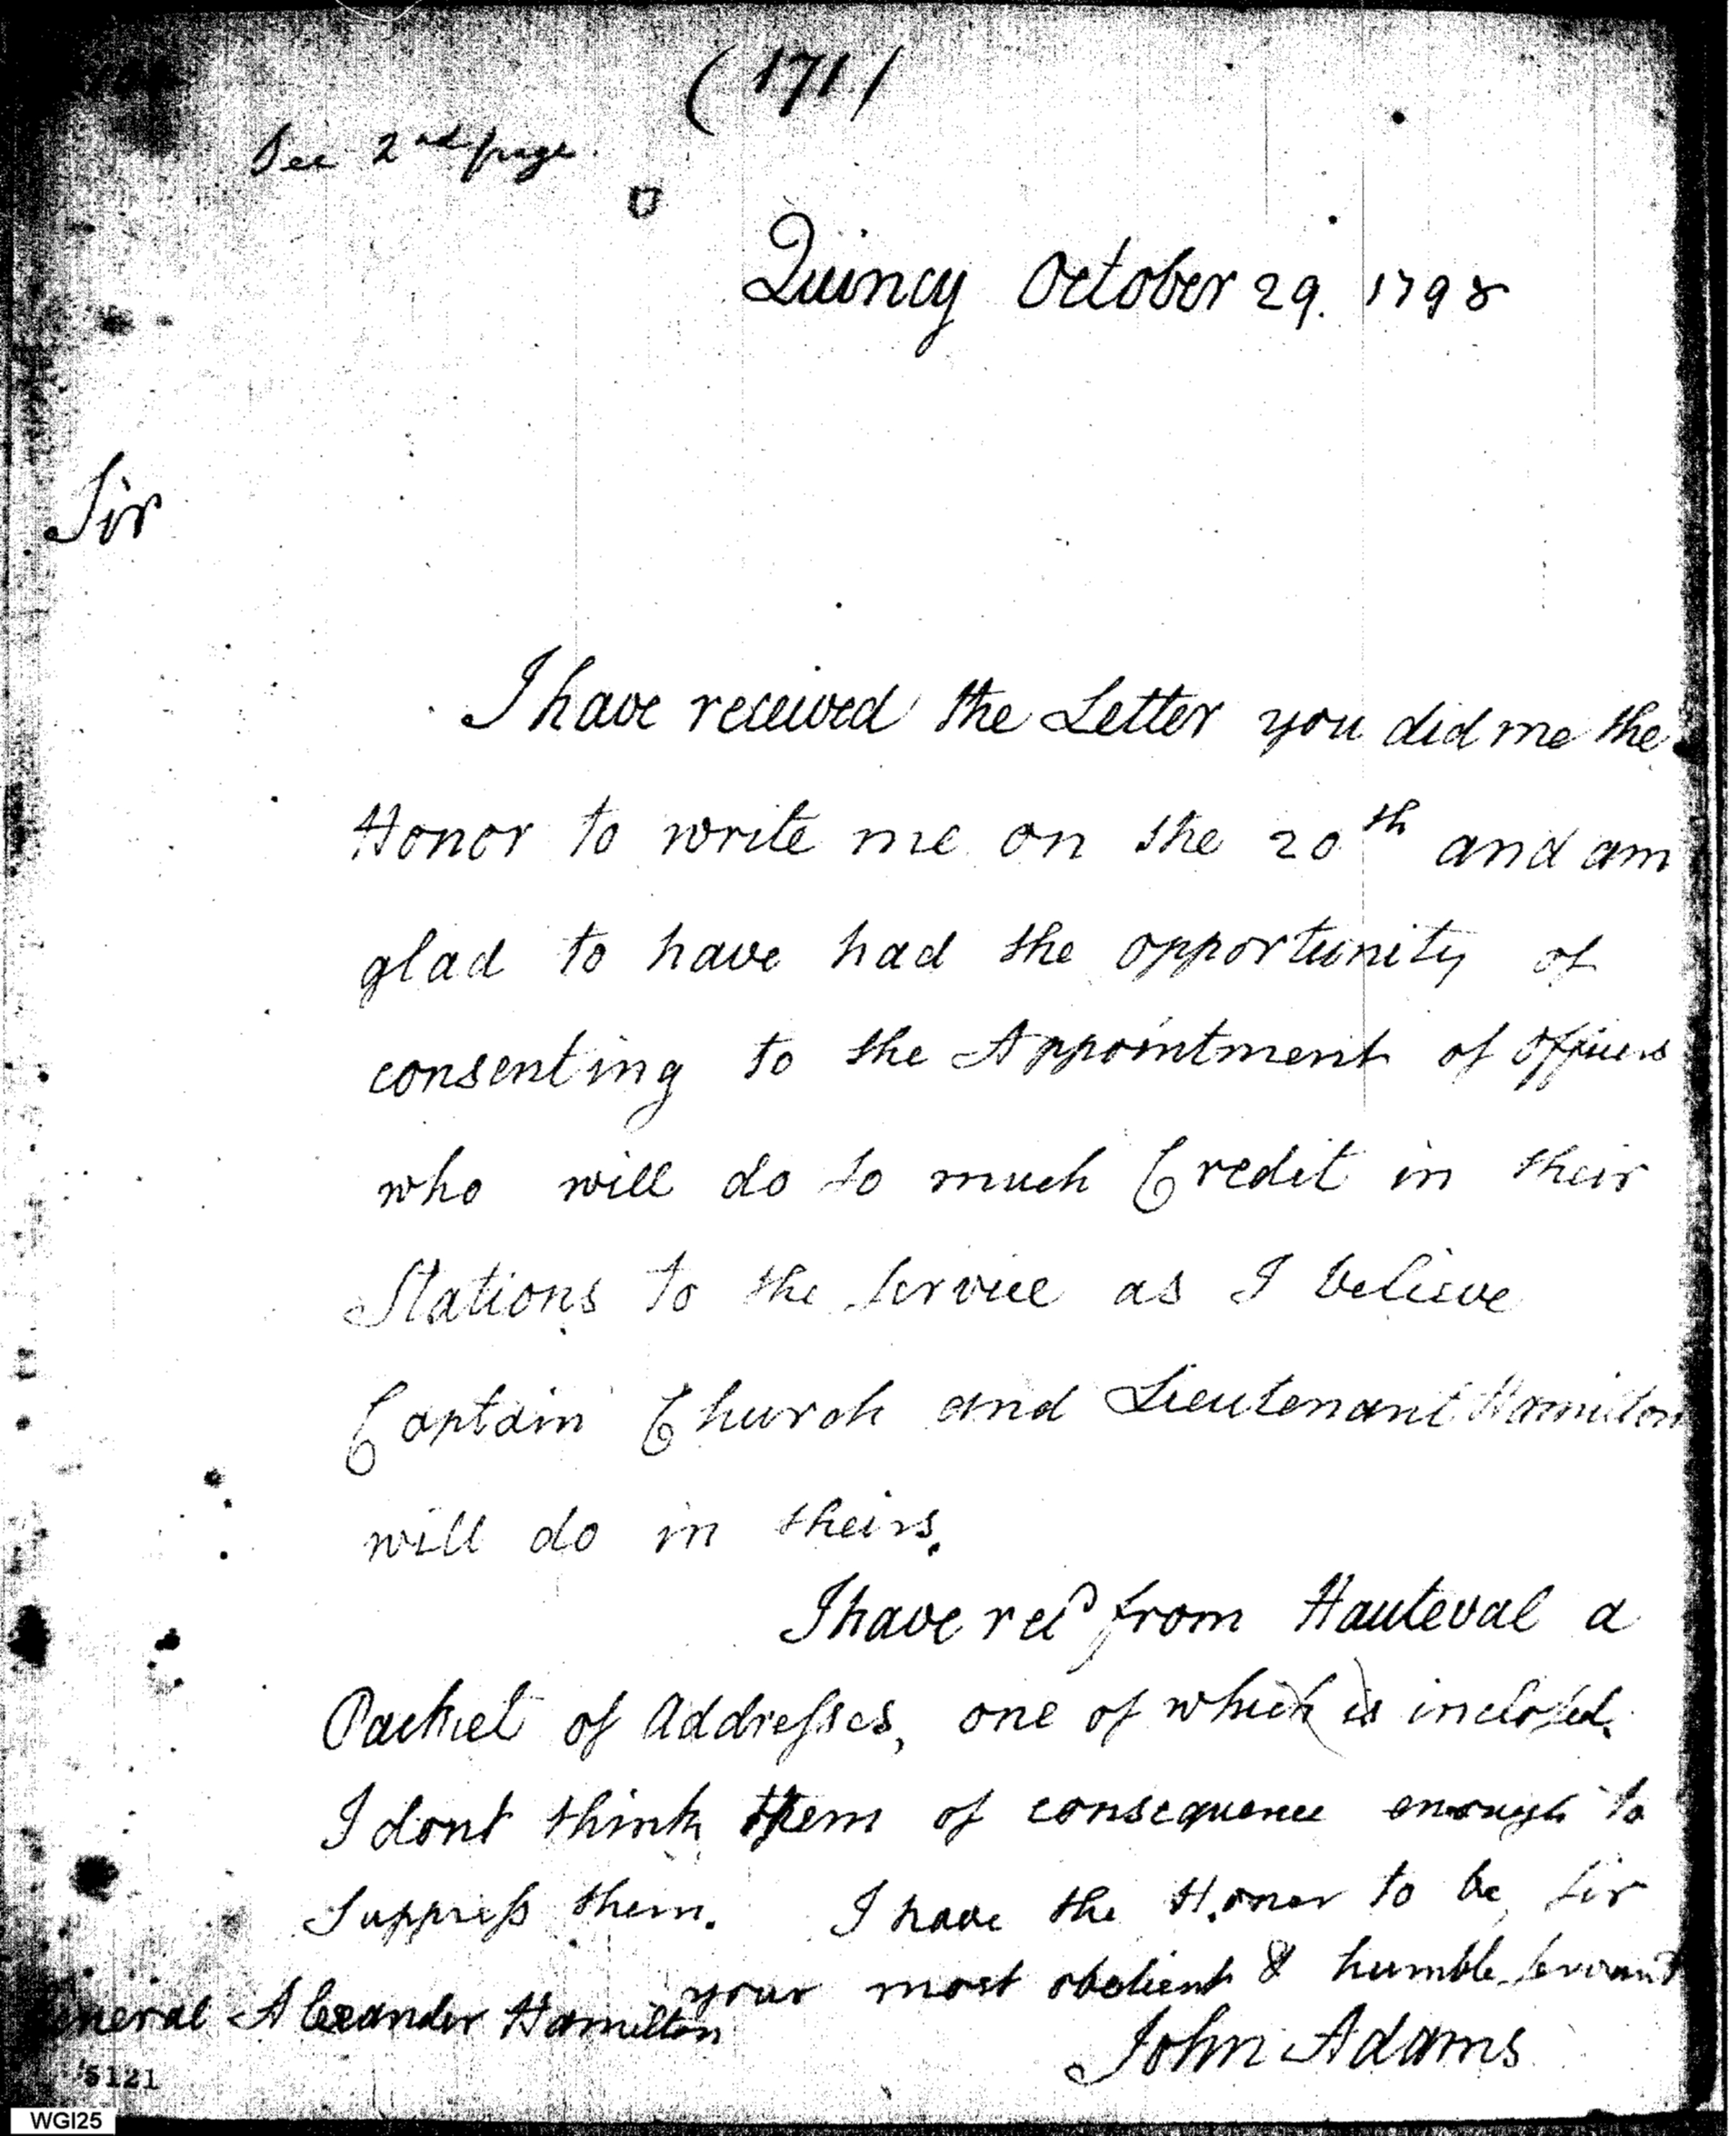 (171)
See 2nd page
Quincy October 29. 1798
Sir
I have received the Letter you did me the
Honor to write me on the 20th and am
glad to have had the opportunity of
consenting to the Appointment of Officers
who will do so much Credit in their
Stations to the Service as I believe
Captain Church and Lieutenant Hamilton
will do in theirs.
I have recd from Hauteval a
Packet of Addresses, one of which is inclosed.
I dont think them of consequence enough to
suppress them. I have the Honor to be, Sir
your most obedient & humble servant
General Alexander Hamilton
John Adams
5121
WGI25